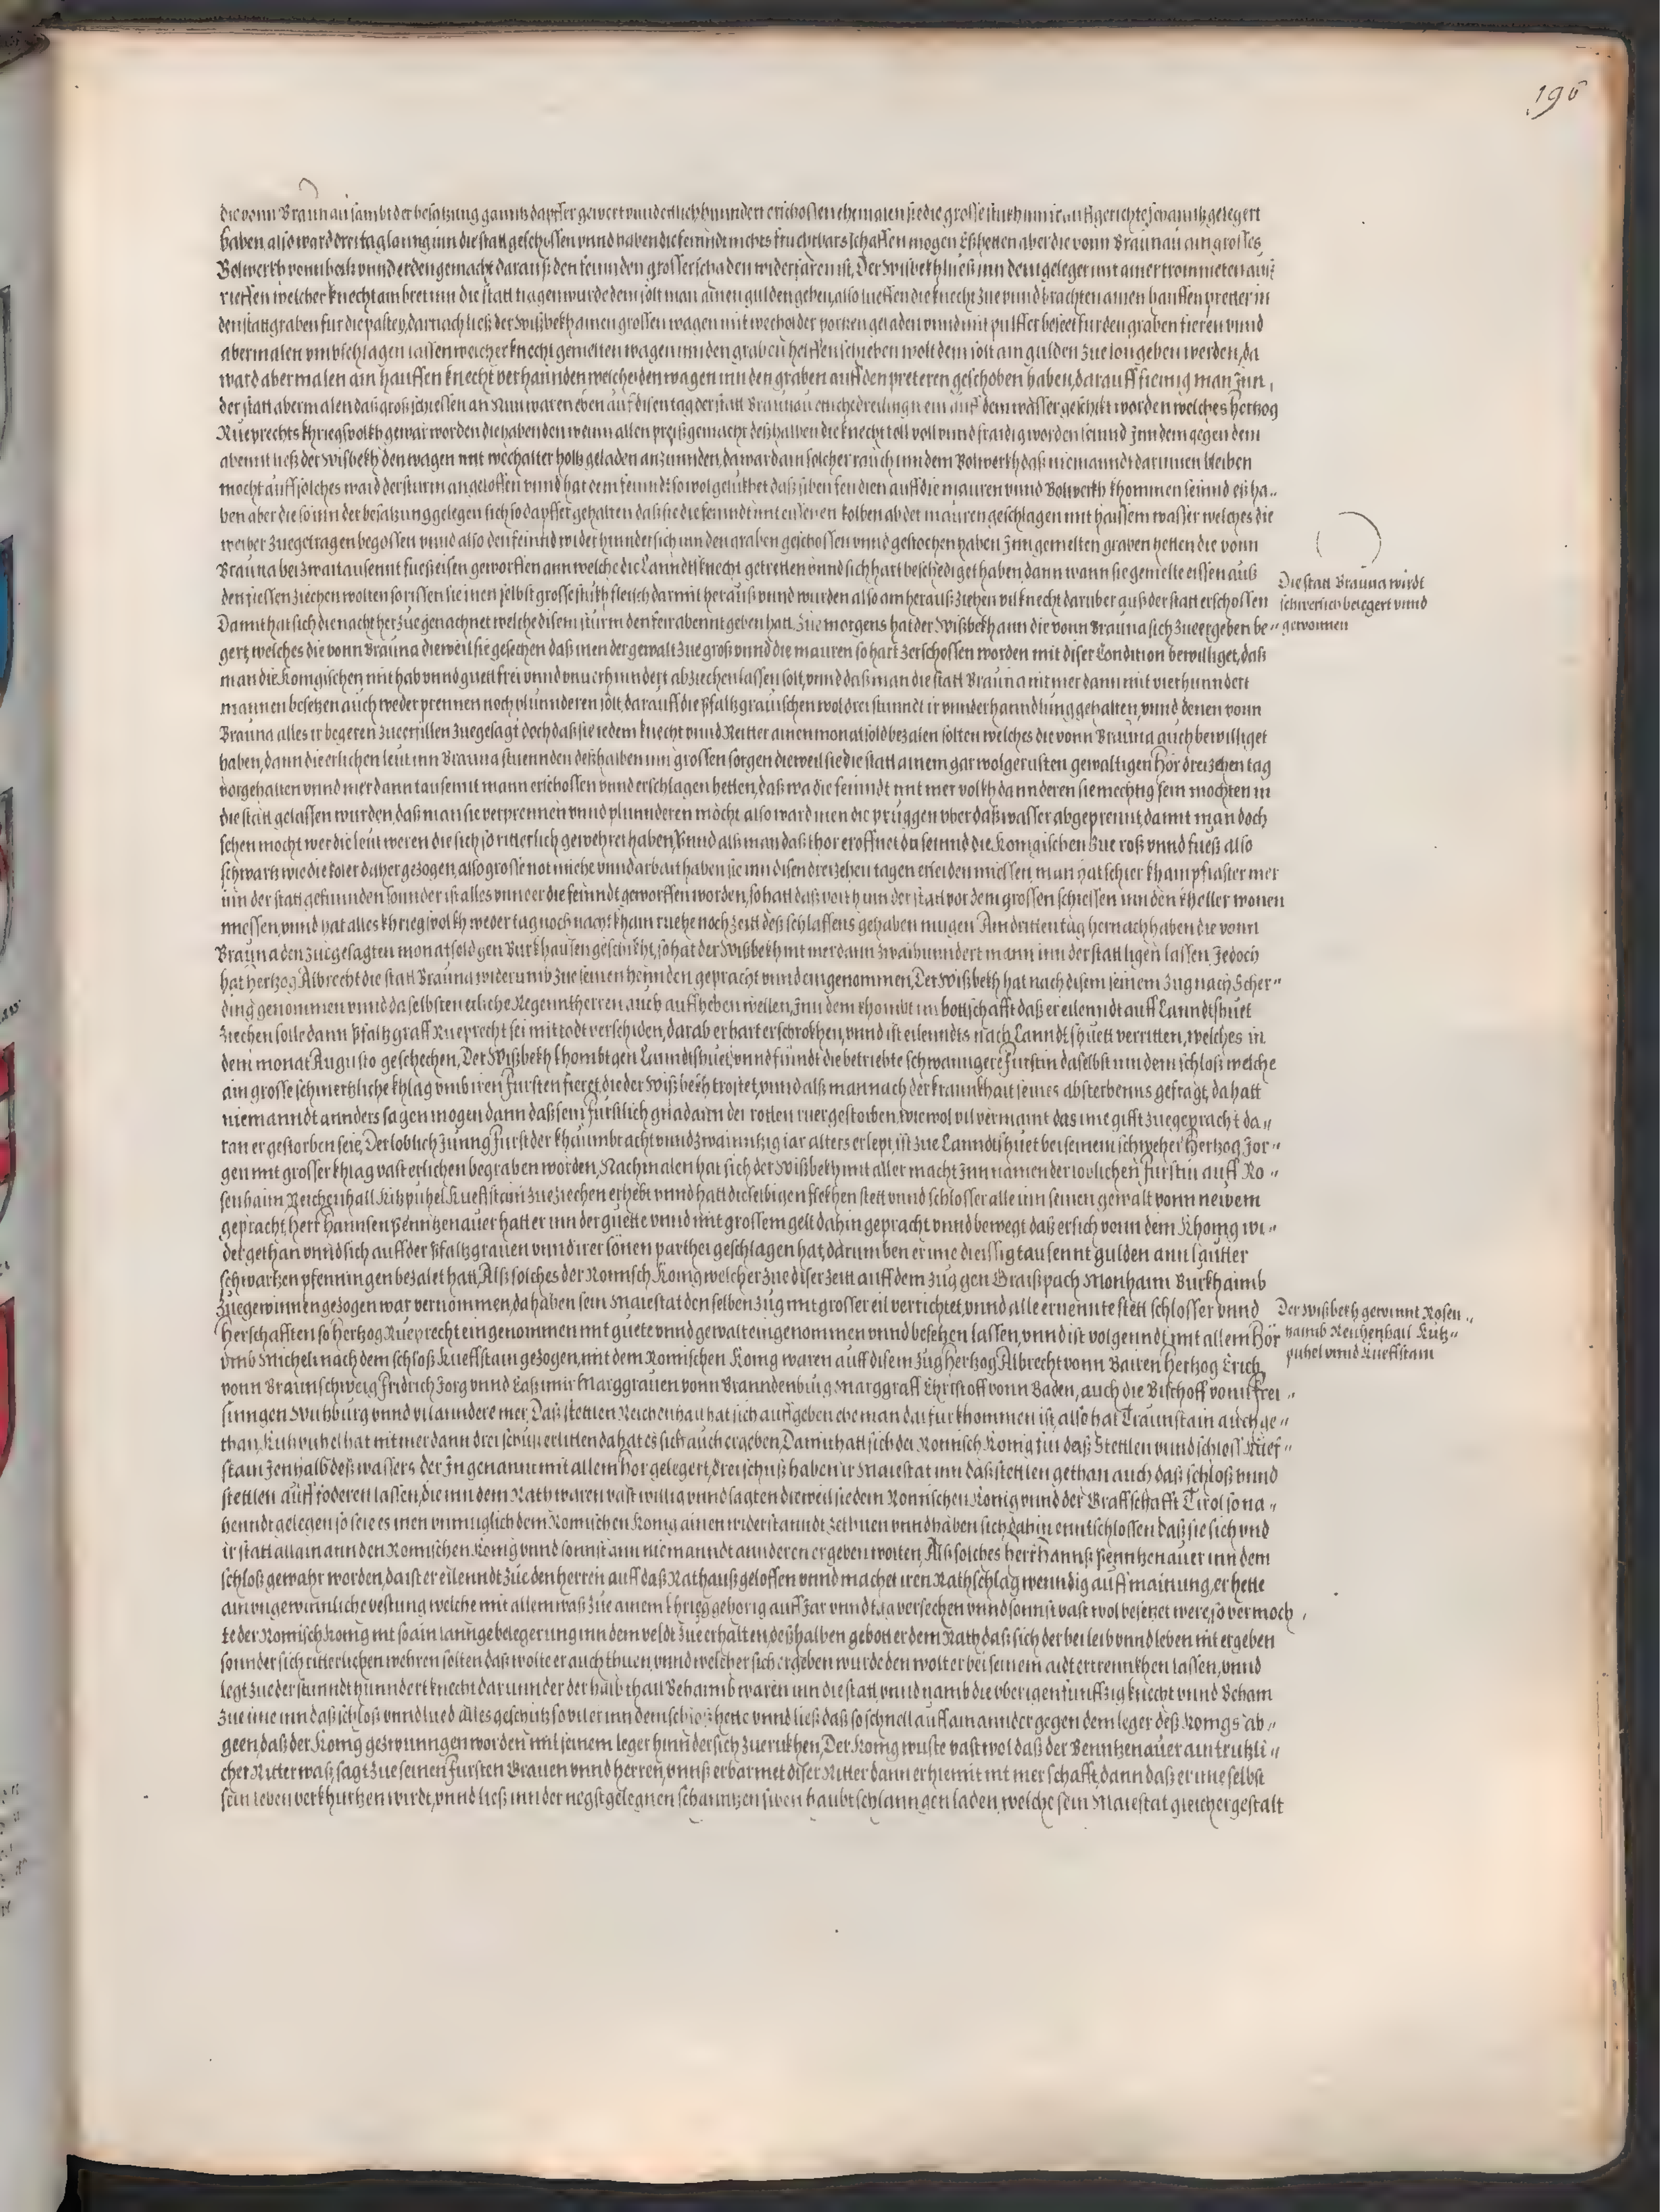 196
die vonn Braunau sambt der besatzung ganntz dapffer gewert vnnd etlich hunndert erschossen ehemalen sie die grosse stukh unnd auffgerichte schanntz gelegert
haben, also ward drei tag lanng inn die statt geschossen vnnd haben die feinndt nichts fruchtbars schaffen mögen Eß hetten aber die vonn Braunau ain grosses
Bolwerkh vonn holtz vnnd erden gemacht darauß den feinnden grosser schaden widerfaren ist, Der Wißbekh ließ inn dem geleger mit ainer trommeten auß
rieffen welcher knecht ain bret inn die statt tragen wurde dem solt man ainen gulden geben, also lueffen die knecht zue vnnd brachten ainen hauffen pretter in
den stattgraben fur die pastey, darnach ließ der Wißbekh ainen grossen wagen mit wecholder porken geladen vnnd mit pulffer beseet fur den graben fieren vnnd
abermalen vmbschlagen lassen welcher knecht gemelten wagen inn den graben helffen schieben wolt dem solt ain gulden zue lon geben werden, da
ward abermalen ain hauffen knecht verhannden welche den wagen inn den graben auff den preteren geschoben haben, darauff fieng man Jnn
der statt abermalen daß groß schiessen an Nun waren eben auf disen tag der statt Braunau etliche dreiling wein auf dem wasser geschikt worden welches hertzog
Rueprechts khriegsvolkh gewar worden die haben den wein allen preiß gemacht deßhalben die knecht toll voll vnnd fraidig worden seinnd Jnn dem gegen dem
abennt ließ der Wißbekh den wagen mit wechalter holtz geladen anzunnden, da ward ain solcher rauch inn dem Bolwerkh daß niemanndt darinnen bleiben
mocht auff solches ward der sturm angeloffen vnnd hat dem feinndt so wol gelukhet daß siben fendlen auff die mauren vnnd Bolwerkh khommen seinnd eß ha„
ben aber die so inn der besatzung gelegen sich so dapffer gehalten daß sie die feinndt mit eisseren kolben ab der mauren geschlagen mit haissem wasser welches die
weiber zuegetragen begossen vnnd also den feinnd wider hinndersich inn den graben geschossen vnnd gestochen haben Jnn gemelten graben hetten die vonn
Brauna bei zwaitausennt fueßeisen geworffen ann welche die Lanndtsknecht getretten vnnd sich hart beschediget haben, dann wann sie gemelte eissen auß
den fiessen ziechen wolten so rissen sie inen selbst grosse stukh fleisch darmit herauß vnnd wurden also am herauß ziehen vil knecht daruber auß der statt erschossen
Damit hat sich die nacht herzue genachnet welche disem sturm den feirabennt geben hatt, Zue morgens hat der Wißbekh ann die vonn Brauna sich zueergeben be„
gert, welches die vonn Brauna dieweil sie gesechen daß inen der gewalt zue groß vnnd die mauren so hart zerschossen worden mit diser Condition bewilliget, daß
man die Konigischen mit hab vnnd guett frei vnnd vnuerhinndert abziechen lassen solt, vnnd daß man die statt Brauna nit mer dann mit vierhunndert
mannen besetzen auch weder prennen noch plunnderen solt, darauff die Pfaltzgrauischen wol drei stunndt ir vnnderhanndlung gehalten, vnnd denen vonn
Brauna alles ir begeren zueerfillen zuegesagt doch daß sie iedem knecht vnnd Reitter ainen monatsold bezalen solten welches die vonn Brauna auch bewilliget
haben, dann die erlichen leut inn Brauna stuennden deßhalben inn grossen sorgen dieweil sie die statt ainem gar wolgerusten gewaltigen Hör dreizehen tag
vorgehalten vnnd mer dann tausennt mann erschossen vnnd erschlagen hetten, daß wa die feinndt mit mer volkh dann deren sie mechtig sein mochten in
die statt gelassen wurden, daß man sie verprennen vnnd plunnderen möcht also ward inen die pruggen vber daß wasser abgeprennt, damit man doch
sehen mocht wer die leut weren die sich so ritterlich gewehret haben, Vnnd alß man daß thor eroffnet da seinnd die Konigischen zue roß vnnd fueß also
schwartz wie die koler daher gezogen, also grosse not miehe vnnd arbait haben sie inn disen dreizehen tagen erleiden miessen, man hat schier khain pflaster mer
inn der statt gefunnden sonnder ist alles vnnder die feinndt geworffen worden, so hatt daß volkh inn der statt vor dem grossen schiessen inn den kheller wonen
miessen, vnnd hat alles khriegsvolkh weder tag noch nacht khain ruehe noch zeitt deß schlaffens gehaben mugen Am dritten tag hernach haben die vonn
Brauna den zuegesagten monatsold gen Burkhausen geschikht, so hat der Wißbekh nit mer dann zwaihunndert mann inn der statt ligen lassen Jedoch
hat hertzog Albrecht die statt Brauna widerumb zue seinen hennden gepracht vnnd eingenommen, Der Wißbekh hat nach disem seinem zug nach Scher„
ding genommen vnnd daselbsten etliche Regenntherren auch auffheben wellen, Jnn dem khombt im bottschafft daß er eilenndt auff Lanndtshuet
ziechen solle dann Pfaltzgraff Rueprecht sei mit todt verschiden, darab er hart erschrokhen, vnnd ist eilenndts nach Lanndtshuett verritten, welches in
dem monat Augusto geschechen, Der Wißbekh khombt gen Lanndtshuet, vnnd findt die betriebte schwanngere Furstin daselbst inn dem schloß welche
ain grosse schmertzliche khlag vmb iren Fursten fieret, die der Wißbekh trostet, vnnd alß man nach der krannkhait seines absterbenns gefragt, da hatt
niemanndt annders sagen mogen dann daß sein furstlich gnad ann der rotten ruer gestorben, wiewol vil vermaint das ime gifft zuegepracht da„
ran er gestorben seie, Der loblich Junng Furst der khaum bracht vnnd zwainntzig iar alters erlept, ist zue Lanndtshuet bei seinem schweher hertzog Jor„
gen mit grosser khlag vast erlichen begraben worden, Nachmalen hat sich der Wißbekh mit aller macht Jnn namen der loblichen furstin auff Ro„
senhaim Reichenhall Kitzpuhel Kueffstain zueziechen erhebt vnnd hatt dieselbigen flekhen stett vnnd schlosser alle inn seinen gewalt vonn newem
gepracht, Herr Hannsen Penntzenauer hatt er inn der guette vnnd mit grossem gelt dahin gepracht vnnd bewegt daß er sich vonn dem Khonig wi„
der gethan vnnd sich auff der Pfaltzgrauen vnnd irer sönen parthei geschlagen hat, darumben er ime dreissigtausennt gulden ann lautter
schwartzen pfenningen bezalet hatt, Alß solches der Romisch Konig welcher zue diser zeitt auff dem zug gen Graißpach Monhaim Burkhaimb
zue gewinnen gezogen war vernommen, da haben sein Maiestat den selben zug mit grosser eil verrichtet, vnnd alle ernennte stett schlosser vnnd
herschafften so hertzog Rueprecht eingenommen mit guete vnnd gewalt eingenommen vnnd besetzen lassen, vnnd ist volgenndt mit allem Hör
vmb Micheli nach dem schloß Kueffstain gezogen, mit dem Romischen Konig waren auff disem zug hertzog Albrecht vonn Bairen hertzog Erich
vonn Braunschweig Fridrich Jorg vnnd Casimir Marggrauen vonn Branndenburg Marggraff Christoff vonn Baden, auch die Bischoff vonn Frei„
singen Wirtzburg vnnd vil anndere mer, Daß stettlen Reichenhall hat sich auffgeben ehe man darfur khommen ist, also hat Traunstain auch ge„
than, Kitzpuhel hat nit mer dann drei schuß erlitten da hat es sich auch ergeben, Damit hatt sich der Romisch Konig fur daß Stettlen vnnd schloß Kuef„
stain Jenhalb deß wassers der Jn genannt mit allem Hör gelegert, drei schuß haben ir Maiestat inn daß stettlen gethan auch daß schloß vnnd
stettlen auff foderen lassen, die inn dem Rath waren vast willig vnnd sagten dieweil sie dem Romischen Konig vnnd der Graffschafft Tirol so na„
henndt gelegen so seie es inen vnmuglich dem Romischen Konig ainen widerstanndt zethuen vnnd haben sich dahin enntschlossen daß sie sich vnd
ir statt allain ann den Romischen Konig vnnd sonnst ann niemanndt annderen ergeben wolten, Alß solches herr Hannß Penntzenauer inn dem
schloß gewahr worden, da ist er eilenndt zue den herren auff daß Rathauß geloffen vnnd machet iren Rathschlag wenndig auff mainung, er hette
ain vngewinnliche vestung welche mit allem waß zue ainem khrieg gehorig auff Jar vnnd tag versechen vnnd sonnst vast wol besetzet were, so vermoch„
te der Romisch Konig nit so ain lannge belegerung inn dem veldt zue erhalten, deßhalben gebott er dem Rath daß sich der bei leib vnnd leben nit ergeben
sonnder sich ritterlichen wehren solten daß wolte er auch thuen, vnnd welcher sich ergeben wurde den wolt er bei seinem aidt ertrennkhen lassen, vnnd
legt zue der stunndt hunndert knecht darunnder der halb thail Behaimb waren inn die statt vnnd namb die vberigen funffzig knecht vnnd Beham
zue ime inn daß schloß vnnd lued alles geschutz so vil er inn dem schloß hette vnnd ließ daß so schnell auff ainannder gegen dem leger deß Konigs ab„
geen, daß der Konig gezwunngen worden mit seinem leger hinndersich zuerukhen, Der Konig wuste vast wol daß der Benntzenauer ain trutzli„
cher Ritter waß, sagt zue seinen Fursten Grauen vnnd herren, vnnß erbarmet diser Ritter dann er hiemit nit mer schafft, dann daß er ime selbst
sein leben verkhurtzen wirdt, vnnd ließ inn der negst gelegnen schanntzen siben haubtschlanngen laden, welche sein Maiestat gleicher gestalt
Die statt Brauna wirdt
schwerlich belegert vnnd
gewonnen
Der Wißbekh gewinnt Rosen„
haimb Reichenhall Kitz„
puhel vnnd Kueffstain